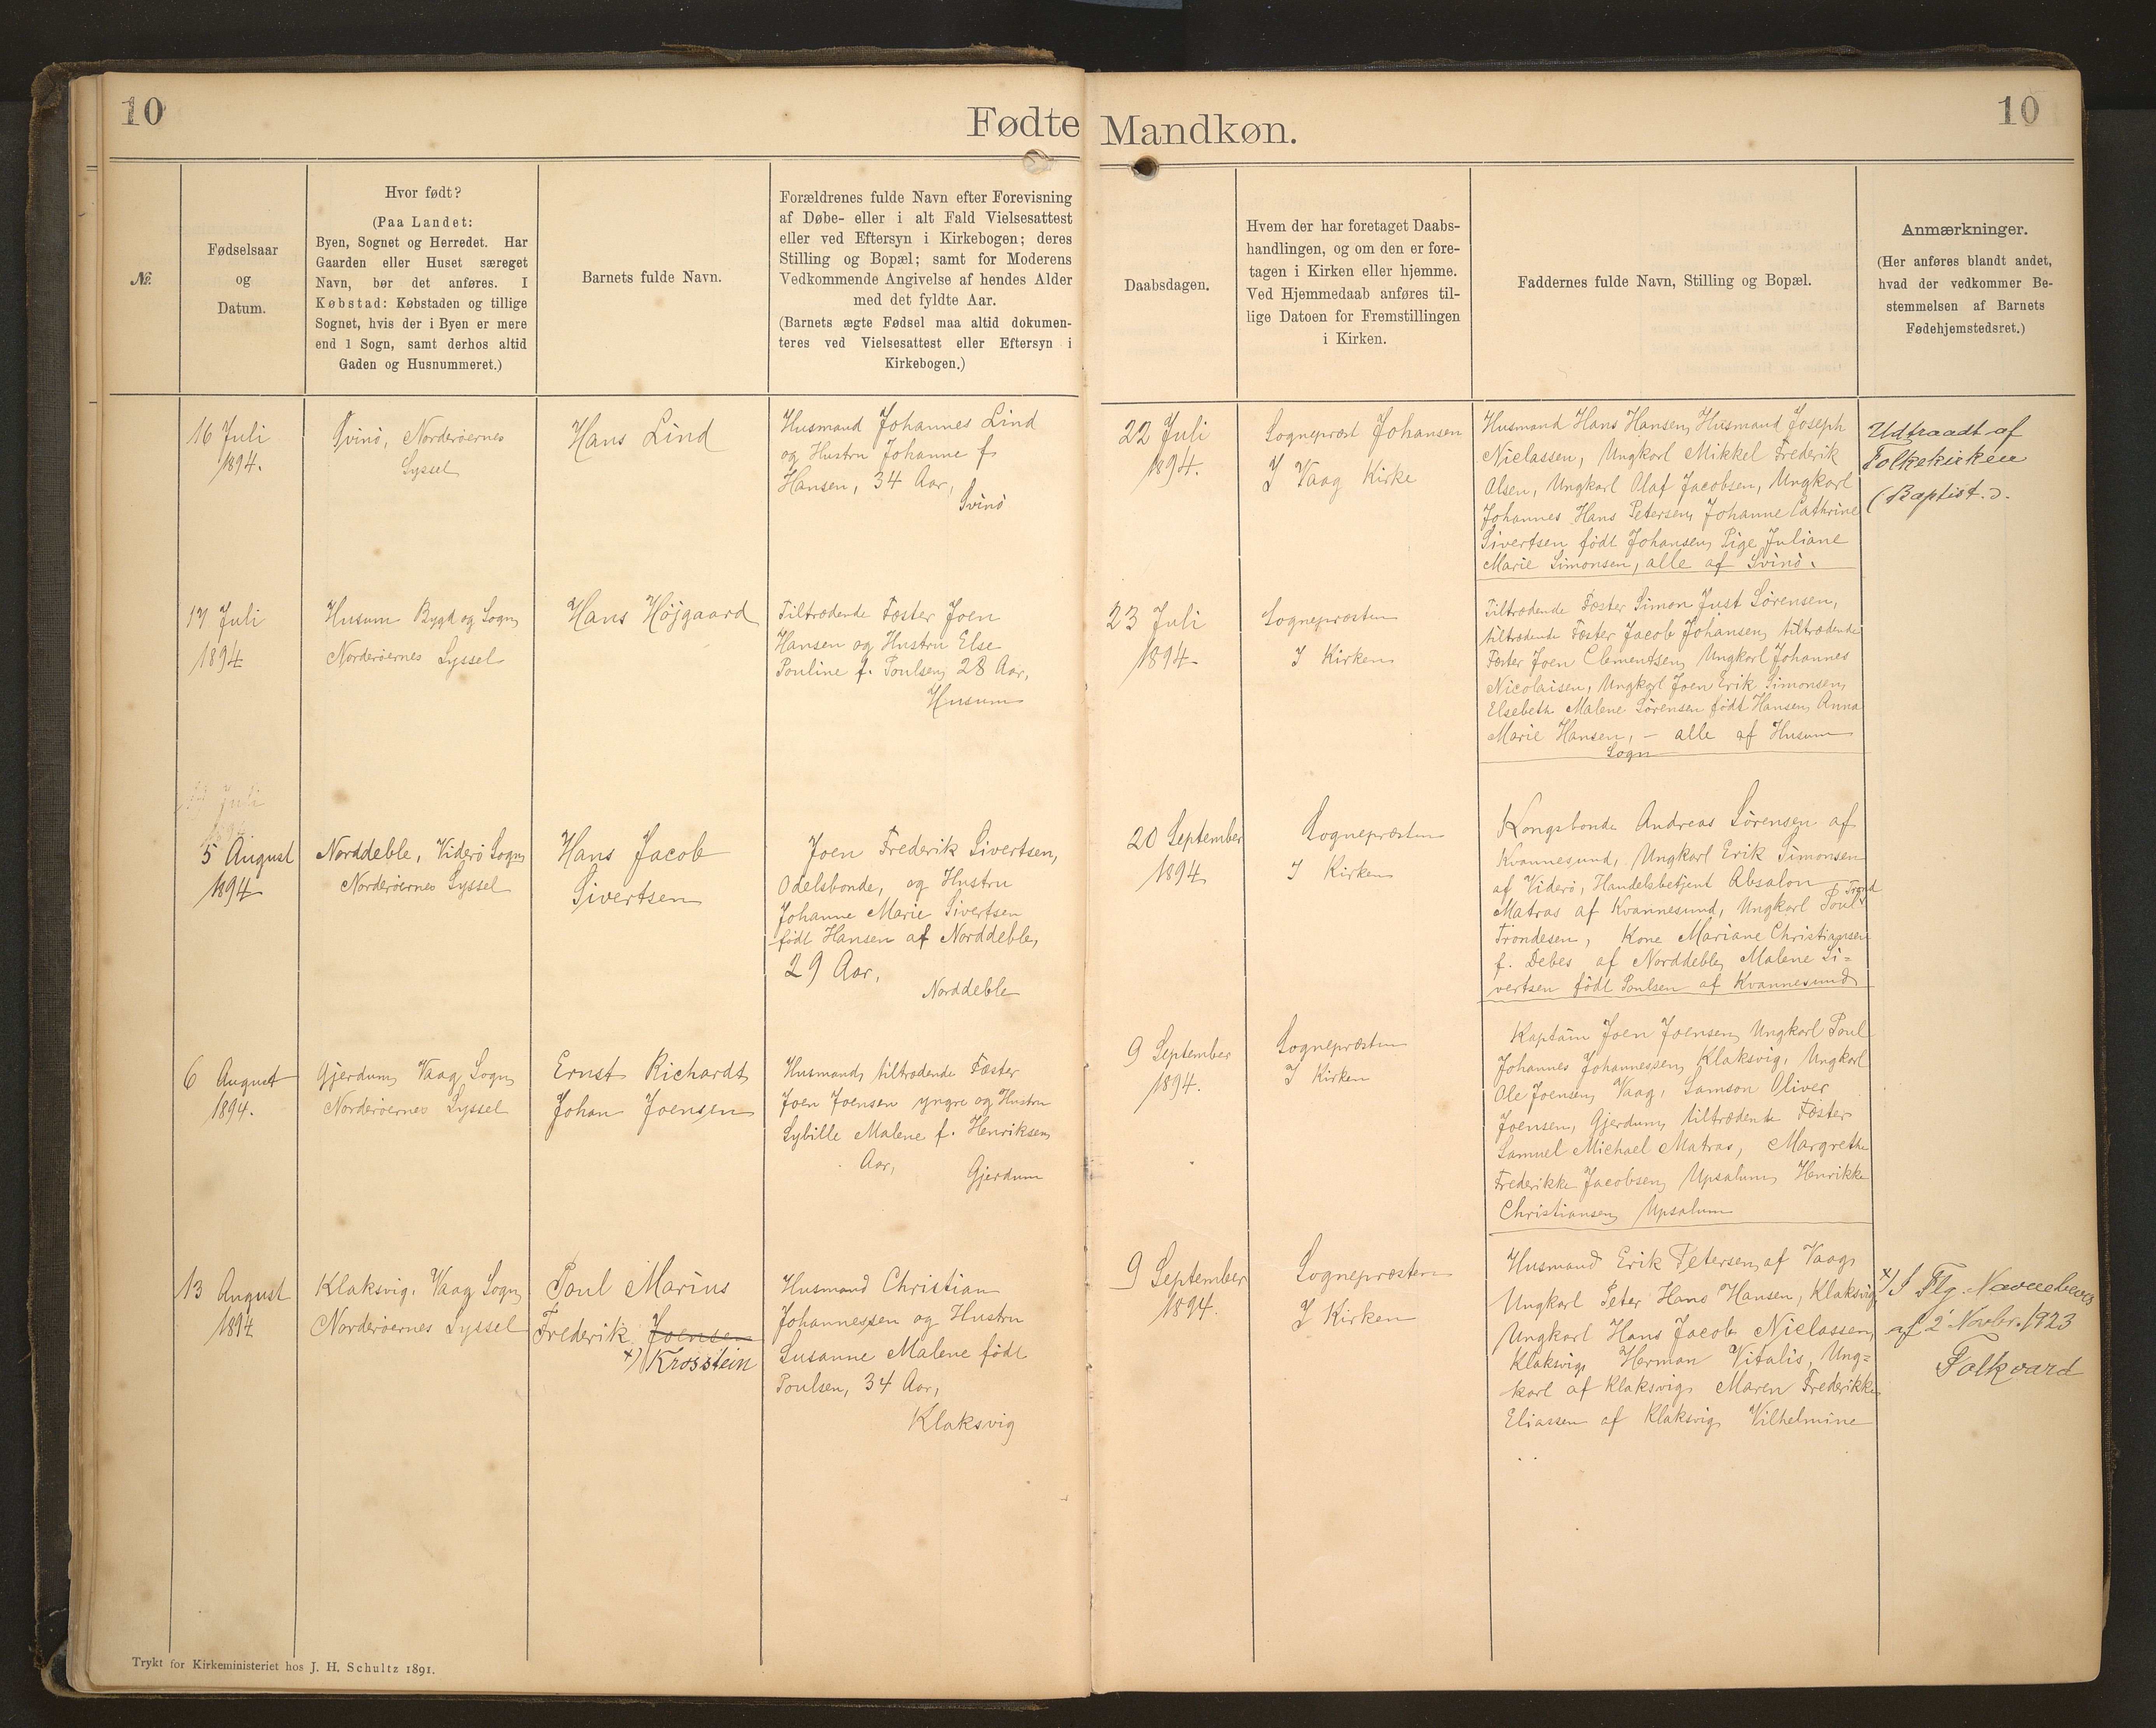 10
Fødte
Mandkøn.
10
№
Fødselsaar
og
Datum.
Hvor født?
(Paa Landet:
Byen, Sognet og Herredet. Har
Gaarden eller Huset særeget
Navn, bør det anføres. I
Købstad: Købstaden og tillige
Sognet, hvis der i Byen er mere
end 1 Sogn, samt derhos altid
Gaden og Husnummeret.)
Barnets fulde Navn.
Forældrenes fulde Navn efter Forevisning
af Døbe- eller i alt Fald Vielsesattest
eller ved Eftersyn i Kirkebogen; deres
Stilling og Bopæl; samt for Moderens
Vedkommende Angivelse af hendes Alder
med det fyldte Aar.
(Barnets ægte Fødsel maa altid dokumen-
teres ved Vielsesattest eller Eftersyn i
Kirkebogen.)
Daabsdagen.
Hvem der har foretaget Daabs-
handlingen, og om den er fore-
tagen i Kirken eller hjemme.
Ved Hjemmedaab anføres til-
lige Datoen for Fremstillingen
i Kirken.
Faddernes fulde Navn, Stilling og Bopæl.
Anmærkninger.
(Her anføres blandt andet,
hvad der vedkommer Be-
stemmelsen af Barnets
Fødehjemstedsret.)
16 Juli
1894.
Svinö, Norderöernes
Syssel
Hans Lind
Husmand Johannes Lind
og Hustru Johanne f.
Hansen, 34 Aar,
Svinö
22 Juli
1894.
Sognepræst Johansen
I Vaag Kirke
Husmand Hans Hansen, Husmand Joseph
Niclassen, Ungkarl Mikkel Frederik
Olsen, Ungkarl Olaf Jacobsen, Ungkarl
Johannes Hans Petersen, Johanne Cathrine
Sivertsen född Johansen, Pige Juliane
Marie Simonsen, alle af Svinö.
Udtraadt af
Folkekirken
(Baptist.).
17 Juli
1894
Husum Bygd og Sogn,
Norderöernes Syssel
Hans Højgaard
Tiltrædende Fæster Joen
Hansen og Hustru Else
Pouline f. Poulsen, 28 Aar,
Husum
23 Juli
1894
Sognepræsten
I Kirken
Tiltrædende Fæster Simon Just Sörensen,
tiltrædende Fæster Jacob Johansen, tiltrædende
Fæster Joen Clementsen, Ungkarl Johannes
Nicolaisen, Ungkarl Joen Erik Simonsen,
Elsebeth Malene Sörensen född Hansen, Anna
Marie Hansen, - alle af Husum
Sogn
Juli
5 August
1894
Norddeble, Viderö Sogn,
Norderöernes Syssel
Hans Jacob
Sivertsen
Joen Frederik Sivertsen,
Odelsbonde, og Hustru
Johanne Marie Sivertsen
född Hansen af Norddeble,
29 Aar,
Norddeble
20 September
1894
Sognepræsten
I Kirken
Kongsbonde Andreas Sörensen af
Kvannesund, Ungkarl Erik Simonsen
af Viderö, Handelsbetjent Absalon
Matras af Kvannesund, Ungkarl Poul Trond
Trondesen, Kone Mariane Christiansen
f. Debes af Norddeble, Malene Si-
vertsen född Poulsen af Kvannesund
6 August
1894.
Gjerdum, Vaag Sogn,
Norderöernes Syssel
Ernst Richardt
Johan Joensen
Husmand, tiltrædende Fæster
Joen Joensen yngre og Hustru
Sybille Malene f. Henriksen,
Aar,
Gjerdum
9 September
1894.
Sognepræsten
I Kirken
Kaptain Joen Joensen, Ungkarl Poul
Johannes Johannessen, Klaksvig, Ungkarl
Ole Joensen, Vaag, Samson Oliver
Joensen, Gjerdum, tiltrædende Fæster
Samuel Michael Matras, Margrethe
Frederikke Jacobsen, Upsalum, Henrikke
Christiansen, Upsalum
13 August
1894
Klaksvig, Vaag Sogn,
Norderöernes Syssel
Poul Marius
Frederik Joensen
x) Krosstein
Husmand Christian
Johannessen og Hustru
Susanne Malene född
Poulsen, 34 Aar,
Klaksvig
9 September
1894.
Sognepræsten
I Kirken
Husmand Erik Petersen, af Vaag,
Ungkarl Peter Hans Hansen, Klaksvig,
Ungkarl Hans Jacob Niclassen,
Klaksvig, Herman Vitalis, Ung-
karl af Klaksvig, Maren Frederikke
Eliassen af Klaksvig, Vilhelmine
x) I Flg. Navnebevis
af 2 Novbr. 1923
Folkvard
Trykt for Kirkeministeriet hos J. H. Schultz 1891.